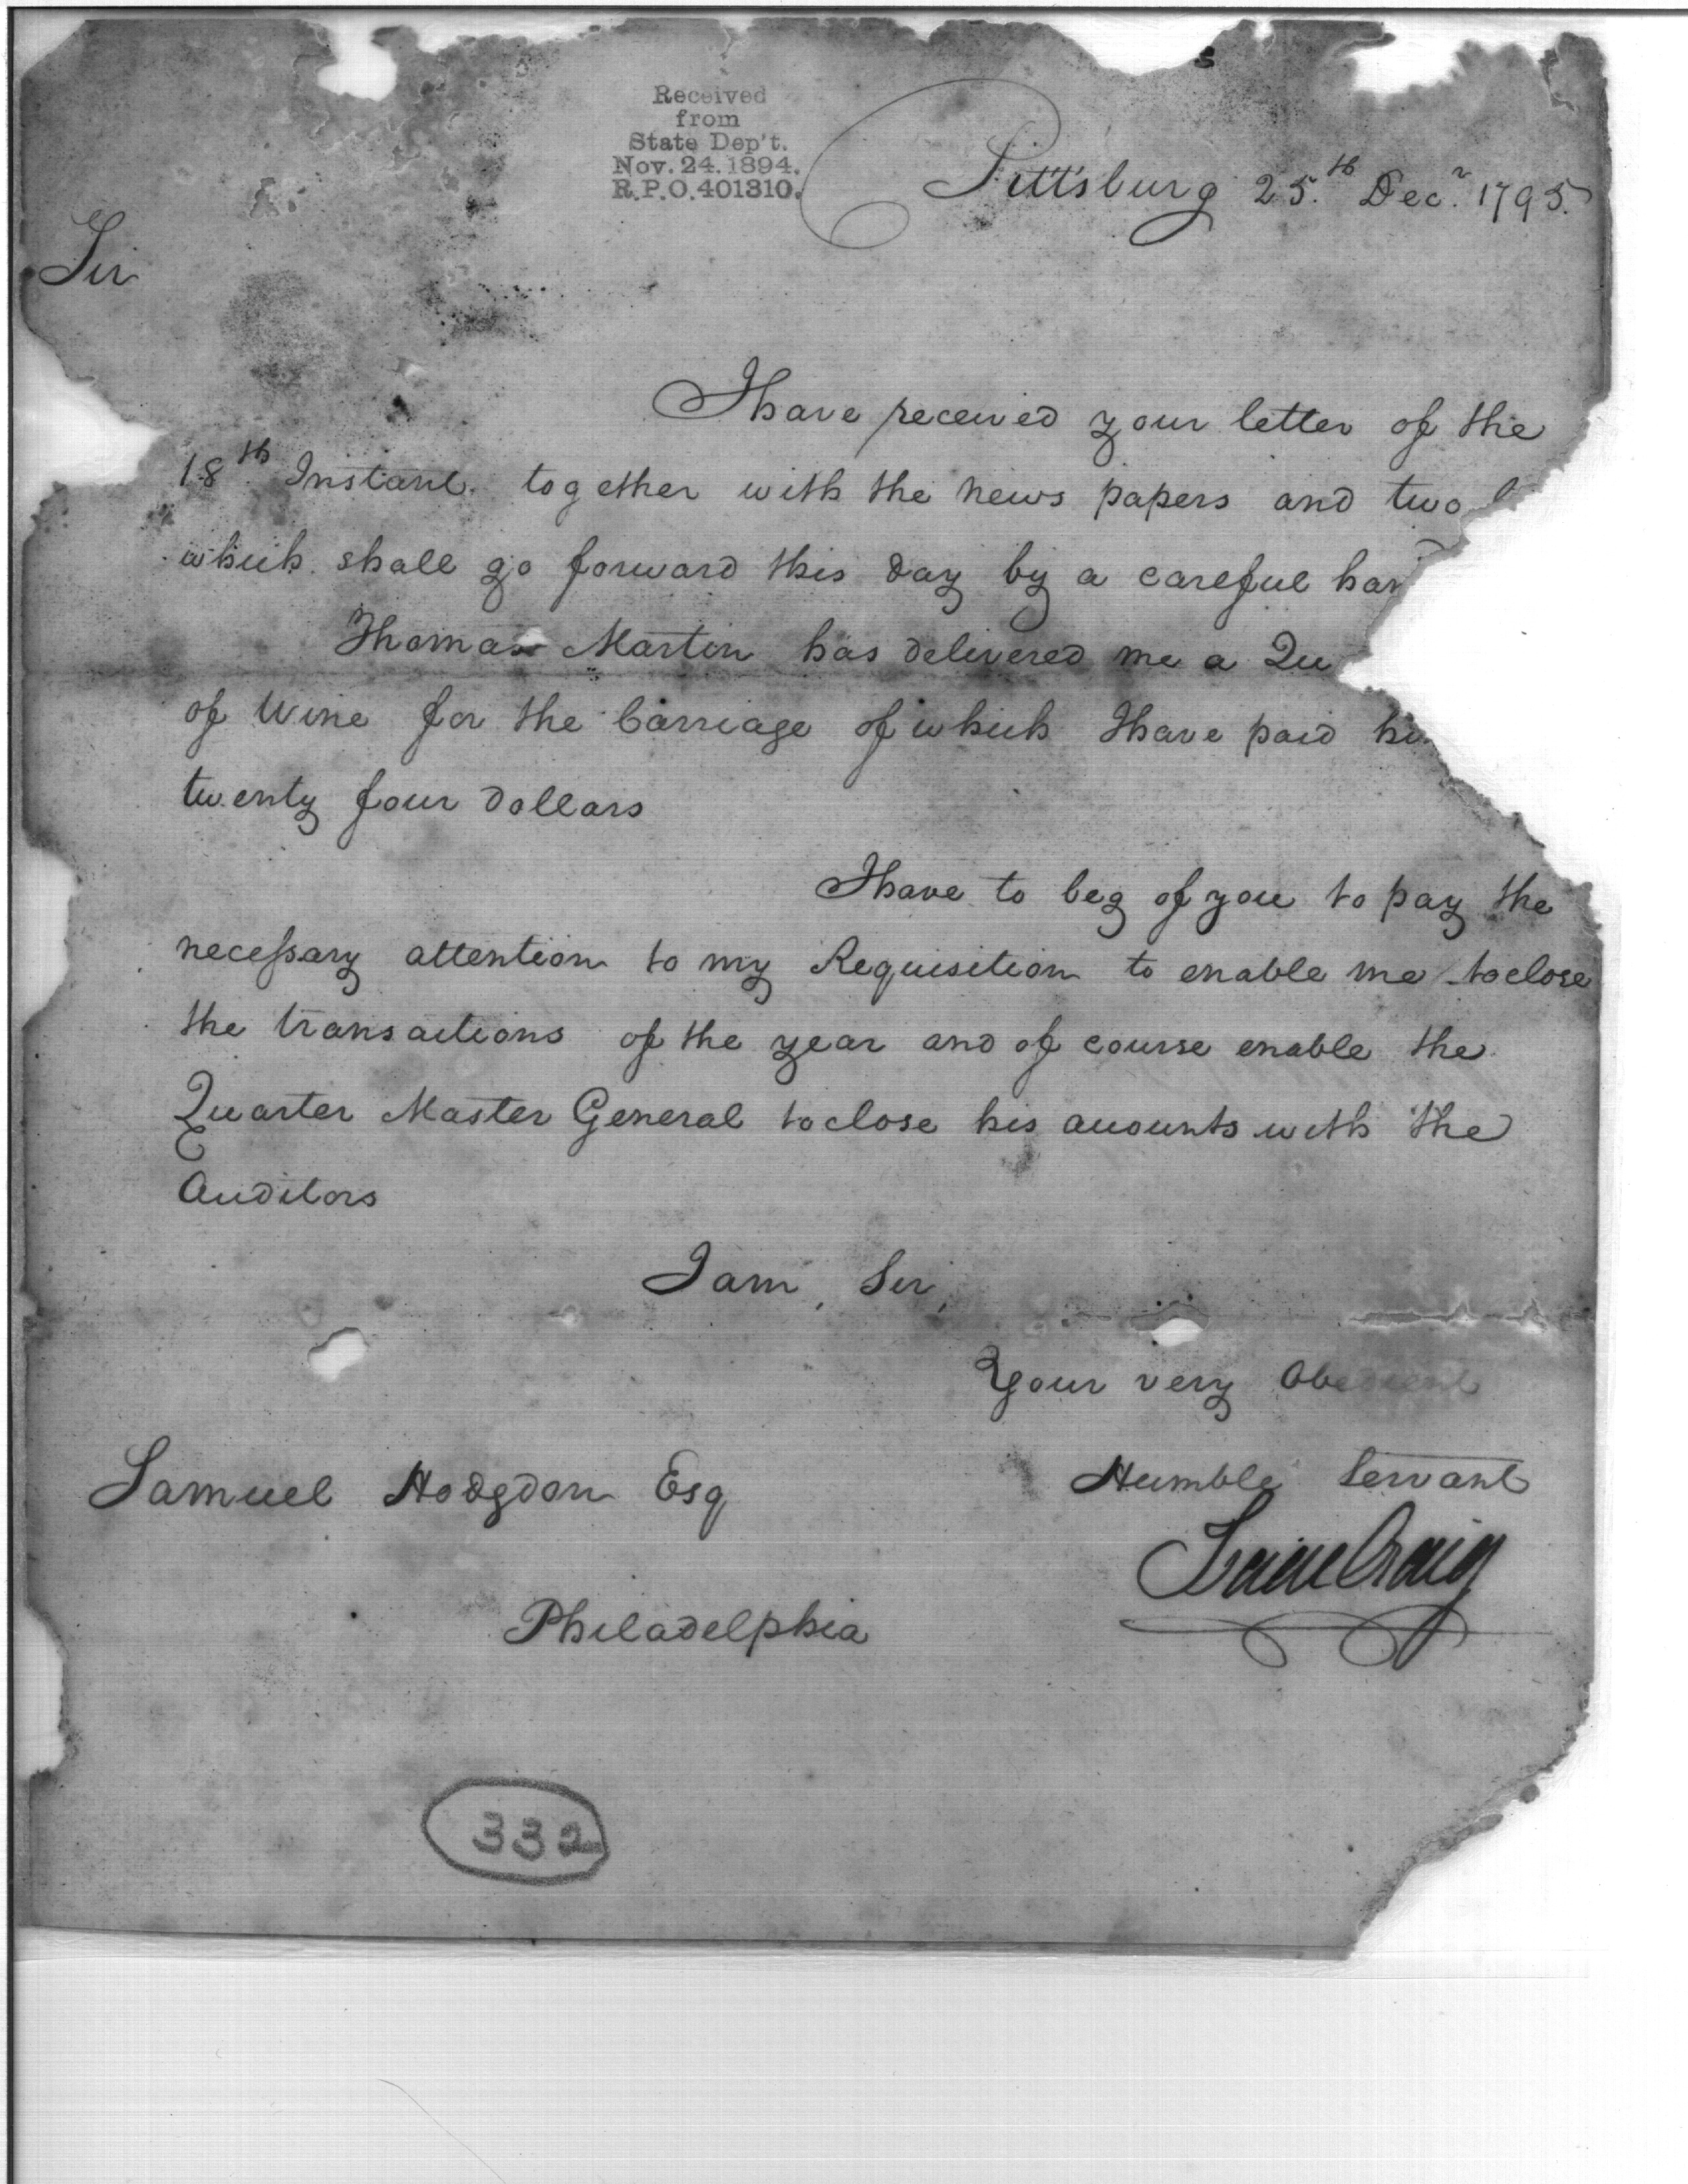 Received
from
State Dep't.
Nov. 24. 1894.
R.P.O. 401310.
Pittsburg 25.th Decr. 1795.
Sir
I have received your letter of the
18th Instant. together with the news papers and two
which shall go forward this day by a careful han
Thomas Martin has delivered me a Qu
of Wine for the Carriage of which I have paid hi
twenty four dollars
I have to beg of you to pay the
necessary attention to my Requisition to enable me to close
the transactions of the year and of course enable the
Quarter Master General to close his accounts with the
Auditors
I am, Sir,
Your very Obedient
Humble Servant
Isaac Craig
Samuel Hodgdon Esq
Philadelphia
332